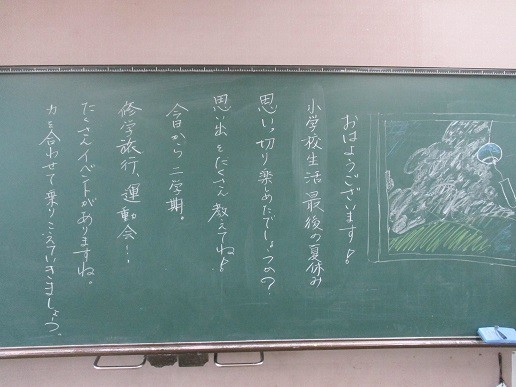 おはようございます♪
小学校生活 最後の夏休み
思いっ切り楽めたでしょうの?
思い出をたくさん教えてね♪
今日から二学期。
修学旅行、運動会…
たくさんイベントがありますね。
力を合わせて乗りこえていきましょう。